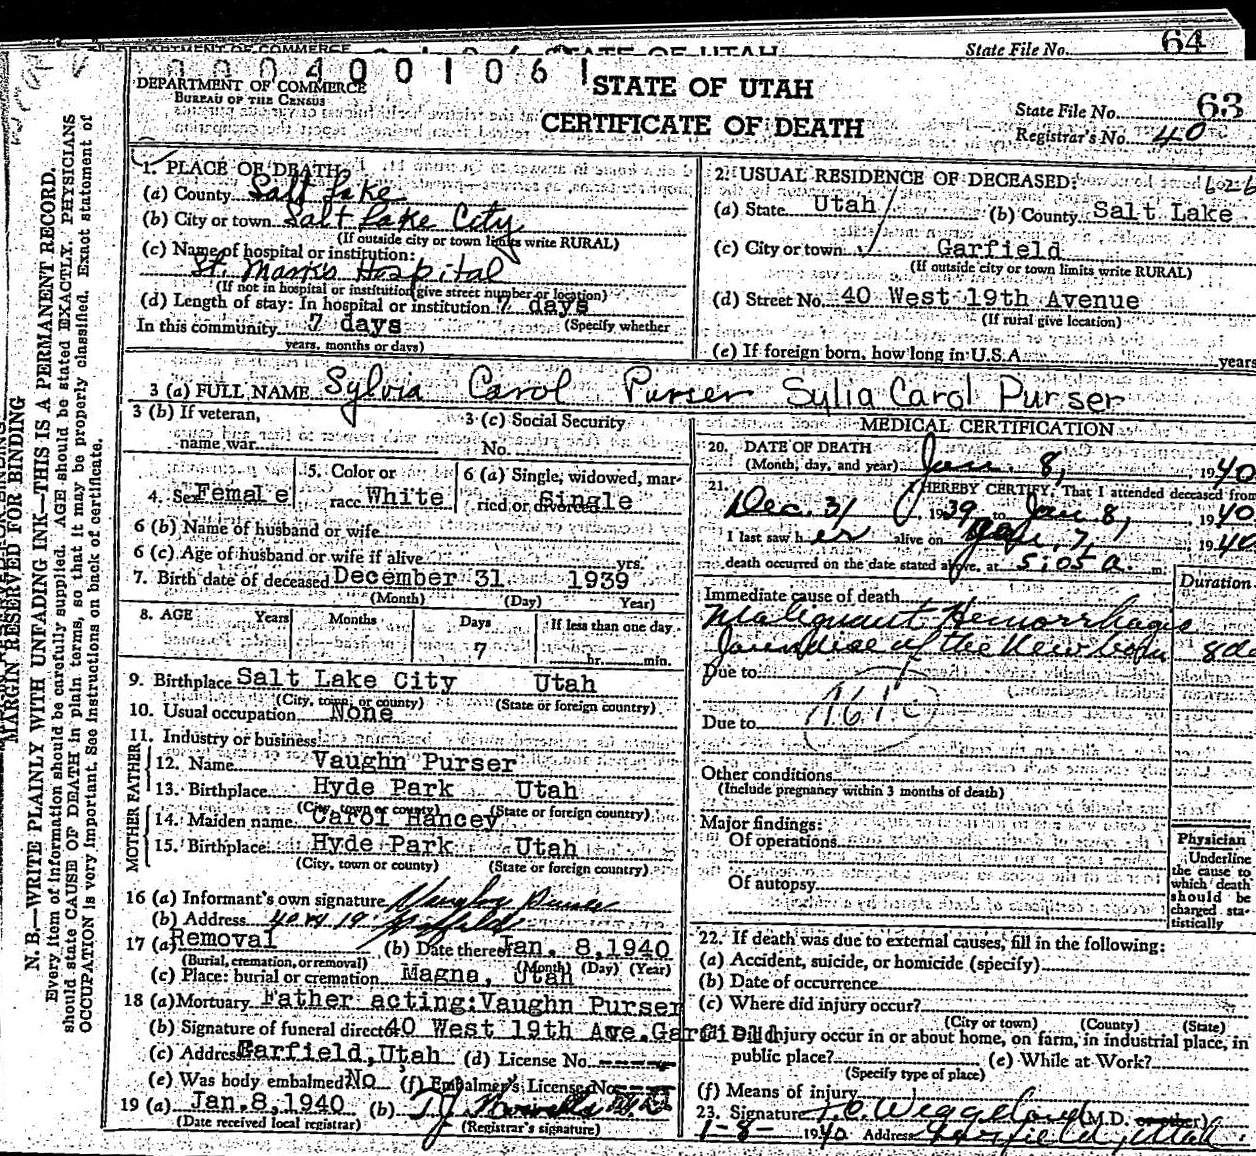 State File No. 64
DEPARTMENT OF COMMERCE STATE OF UTAH
0004001061
DEPARTMENT OF COMMERCE
BUREAU OF THE CENSUS
STATE OF UTAH
CERTIFICATE OF DEATH
State File No. 63
Registrar's No. 40
1. PLACE OF DEATH
(a) County Salt Lake
(b) City or town Salt Lake City
(If outside city or town limits write RURAL)
(c) Name of hospital or institution:
St. Marks Hospital
(If not in hospital or institution give street number or location)
(d) Length of stay: In hospital or institution 7 days
In this community 7 days (Specify whether
years, months or days)
2. USUAL RESIDENCE OF DECEASED:
(a) State Utah (b) County Salt Lake
(c) City or town Garfield
(If outside city or town limits write RURAL)
(d) Street No. 40 West 19th Avenue
(If rural give location)
(e) If foreign born, how long in U.S.A. years
3 (a) FULL NAME Sylvia Carol Purser Sylia Carol Purser
3 (b) If veteran, 3 (c) Social Security
name war No.
4. Sex Female 5. Color or race White 6 (a) Single, widowed, married or divorced Single
6 (b) Name of husband or wife
6 (c) Age of husband or wife if alive yrs.
7. Birth date of deceased December 31 1939
(Month) (Day) Year)
8. AGE Years Months Days If less than one day
7 hr. min.
9. Birthplace Salt Lake City Utah
(City, town, or county) (State or foreign country)
10. Usual occupation None
11. Industry or business
FATHER
12. Name Vaughn Purser
13. Birthplace Hyde Park Utah
(City, town or county) (State or foreign country)
MOTHER
14. Maiden name Carol Hancey
15. Birthplace Hyde Park Utah
(City, town or county) (State or foreign country)
16 (a) Informant's own signature Vaughn Purser
(b) Address 40 W 19 Garfield
17 (a) Removal (b) Date thereof Jan. 8, 1940
(Burial, cremation, or removal) (Month) (Day) (Year)
(c) Place: burial or cremation Magna, Utah
18 (a) Mortuary Father acting: Vaughn Purser
(b) Signature of funeral director 40 West 19th Ave. Garfield
(c) Address Garfield, Utah (d) License No. -----
(e) Was body embalmed? No (f) Embalmer's License No. ----
19 (a) Jan. 8, 1940 (b)
(Date received local registrar) (Registrar's signature)
MEDICAL CERTIFICATION
20. DATE OF DEATH
(Month, day, and year) Jan. 8, 1940
21. I HEREBY CERTIFY, That I attended deceased from
Dec. 31 1939 to Jan. 8, 1940
I last saw her alive on Jan. 7, 1940
death occurred on the date stated above, at 5:05 a. m.
Immediate cause of death Duration
Malignant Hemorrhagic
Jaundice of the Newborn 8 da
Due to
161 c
Due to
Other conditions
(Include pregnancy within 3 months of death)
Major findings:
Of operations
Of autopsy
Physician
Underline the cause to which death should be charged statistically
22. If death was due to external causes, fill in the following:
(a) Accident, suicide, or homicide (specify)
(b) Date of occurrence
(c) Where did injury occur?
(City or town) (County) (State)
(d) Did injury occur in or about home, on farm, in industrial place, in
public place? (e) While at Work?
(Specify type of place)
(f) Means of injury
23. Signature (M.D. or other)
1-8- 1940 Address Garfield, Utah
MARGIN RESERVED FOR BINDING
N. B.—WRITE PLAINLY WITH UNFADING INK—THIS IS A PERMANENT RECORD.
Every item of information should be carefully supplied. AGE should be stated EXACTLY. PHYSICIANS
should state CAUSE OF DEATH in plain terms, so that it may be properly classified. Exact statement of
OCCUPATION is very important. See instructions on back of certificate.